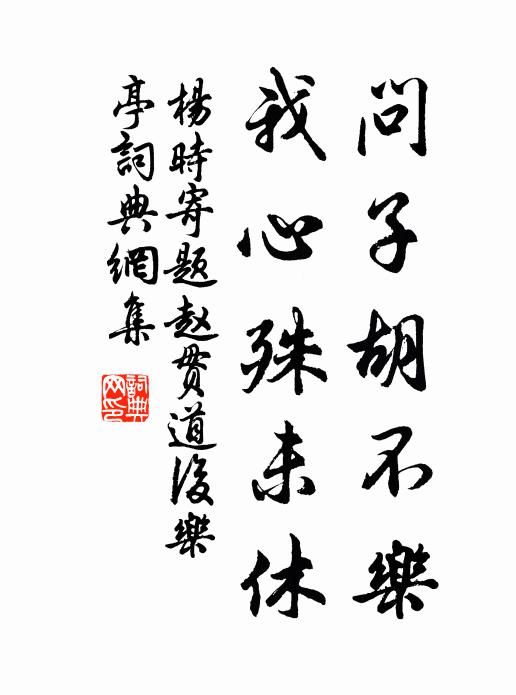 問子胡不樂
我心殊未休
楊時寄題赵貫道後樂
亭詞典網集
詞典
网印